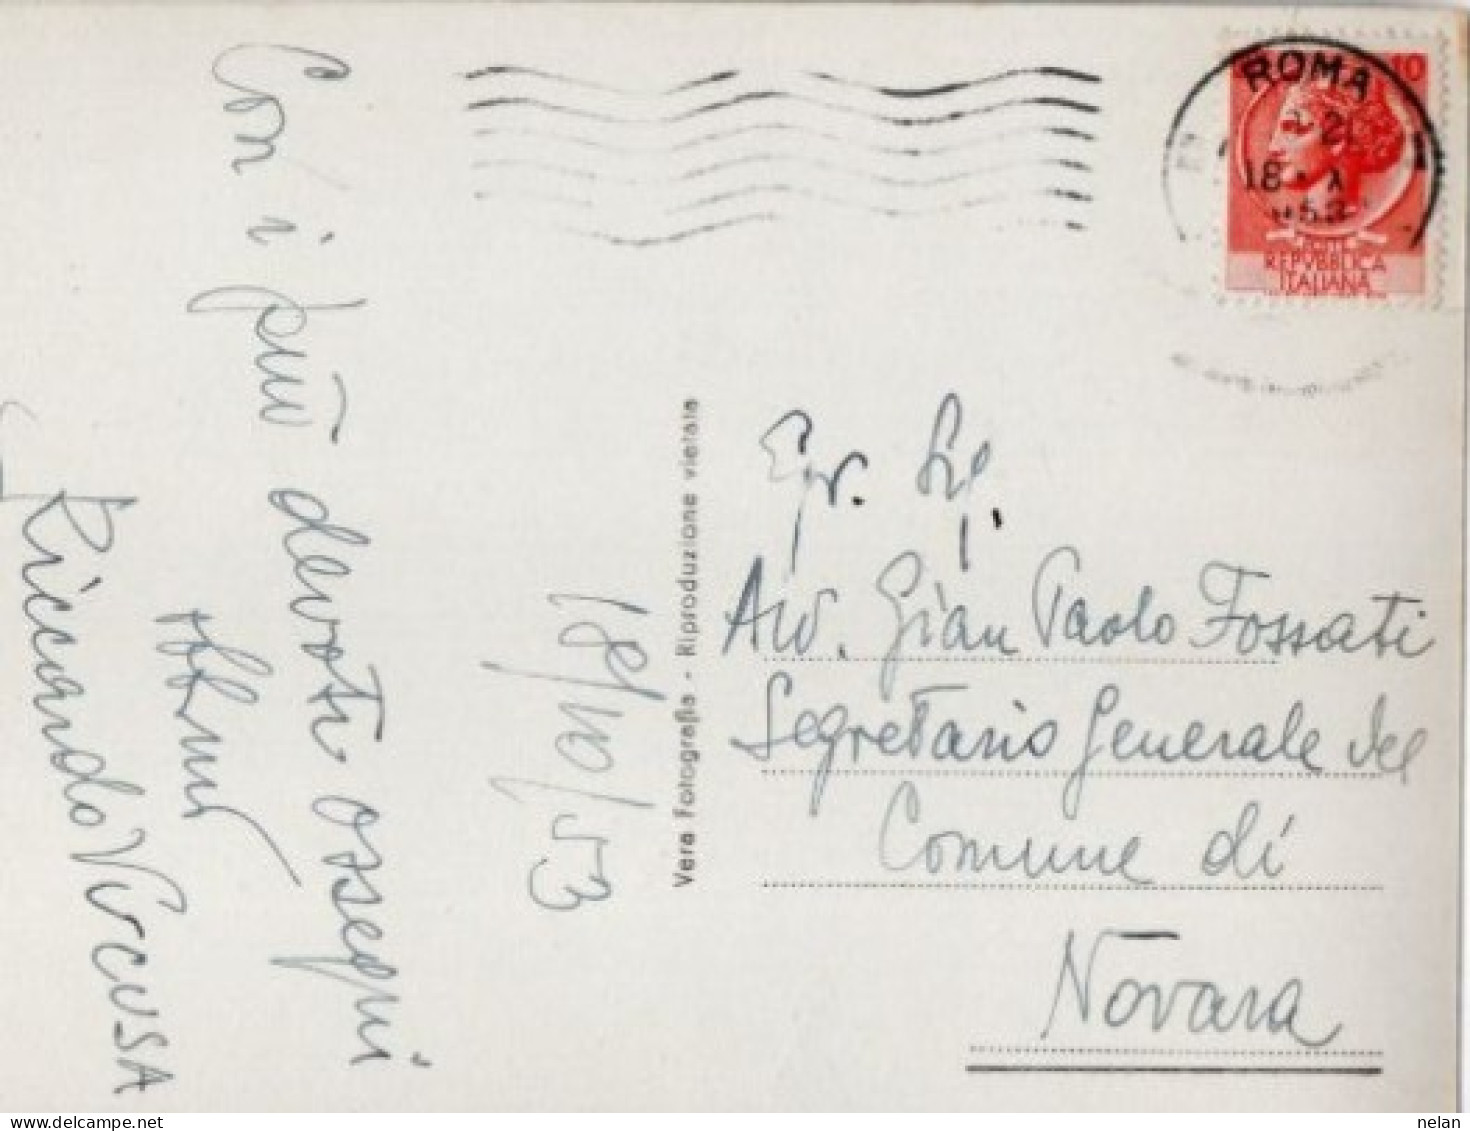 Con i più devoti ossequi
Riccardo Vircusa
18/10/53
Vera Fotografia - Riproduzione vietata
ROMA
18 · X
10
POSTE
REPVBBLICA
ITALIANA
Egr. Sig.
Avv. Gian Paolo Fossati
Segretario Generale del
Comune di
Novara
nelan